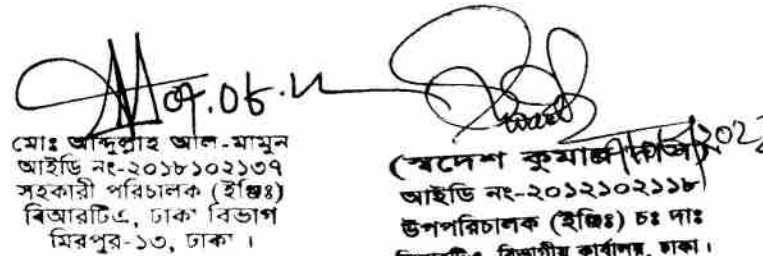 মোঃ আব্দুল্লাহ আল-মামুন
আইডি নং-২০১৮১০২১৩৭
সহকারী পরিচালক (ইঞ্জিঃ)
বিআরটিএ, ঢাকা বিভাগ
মিরপুর-১৩, ঢাকা ।
(স্বদেশ কুমার দাস)
আইডি নং-২০১২১০২১১৮
উপপরিচালক (ইঞ্জিঃ) চঃ দাঃ
বিআরটিএ, বিভাগীয় কার্যালয়, ঢাকা।